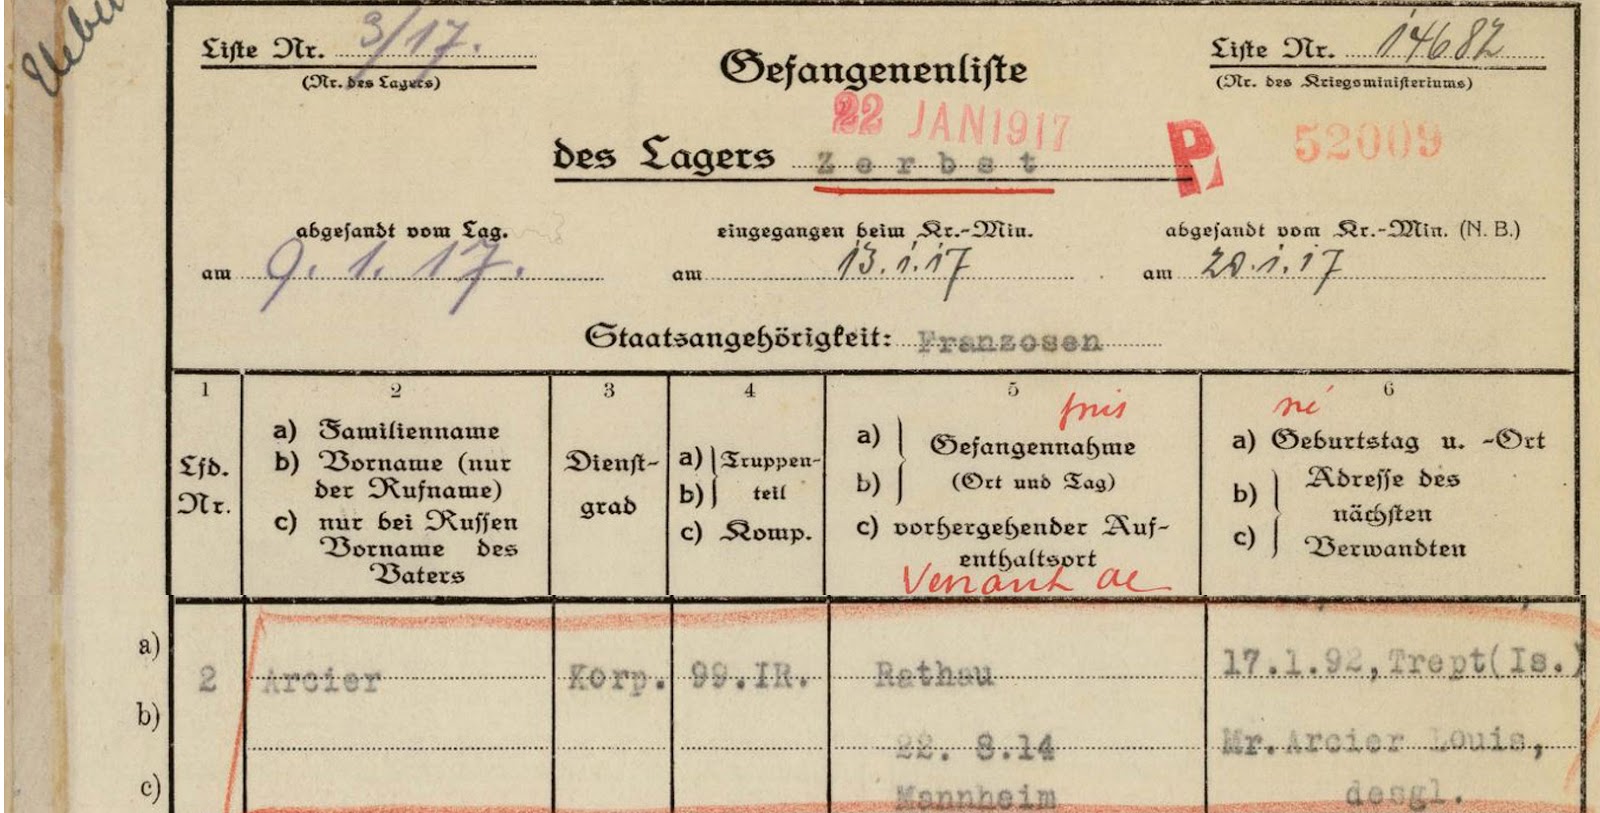 Liste Nr. 3/17.
(Nr. des Lagers)
Gefangenenliste
Liste Nr. 14682
(Nr. des Kriegsministeriums)
22 JAN 1917
des Lagers Zerbst
P. 52009
abgesandt vom Lag.
am 9. 1. 17.
eingegangen beim Kr.-Min.
am 13.1.17
abgesandt vom Kr.-Min. (N. B.)
am 20.1.17
Staatsangehörigkeit: Franzosen
1
Lfd.
Nr.
2
a) Familienname
b) Vorname (nur
der Rufname)
c) nur bei Russen
Vorname des
Vaters
3
Dienst-
grad
4
a) Truppen-
b) teil
c) Komp.
5
pris
a)
Gefangennahme
b)
(Ort und Tag)
c) vorhergehender Auf-
enthaltsort
Venant de
6
né
a) Geburtstag u. -Ort
Adresse des
b)
nächsten
c)
Verwandten
a)
2 Arcier Korp. 99.IR. Rathau 17.1.92,Trept(Is.)
b)
22. 8.14 Mr.Arcier Louis,
c)
Mannheim desgl.